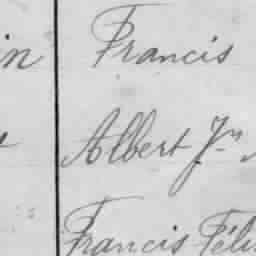 in Francis
Albert Jn
Francis Féli